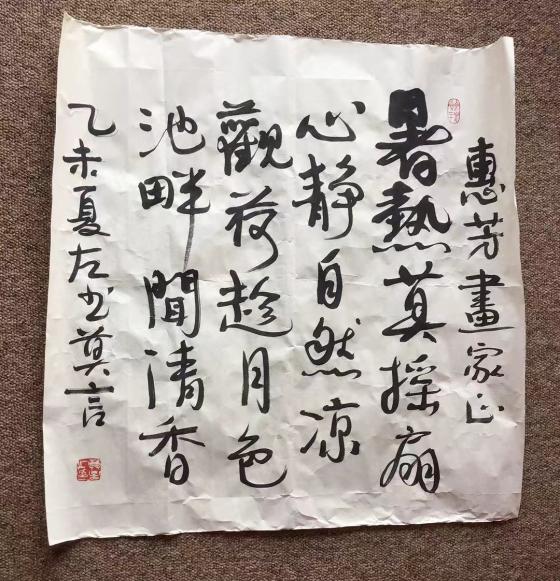 惠芳畫家正
暑熱莫揺扇
心静自然凉
觀荷趁月色
池畔聞清香
乙未夏左书莫言